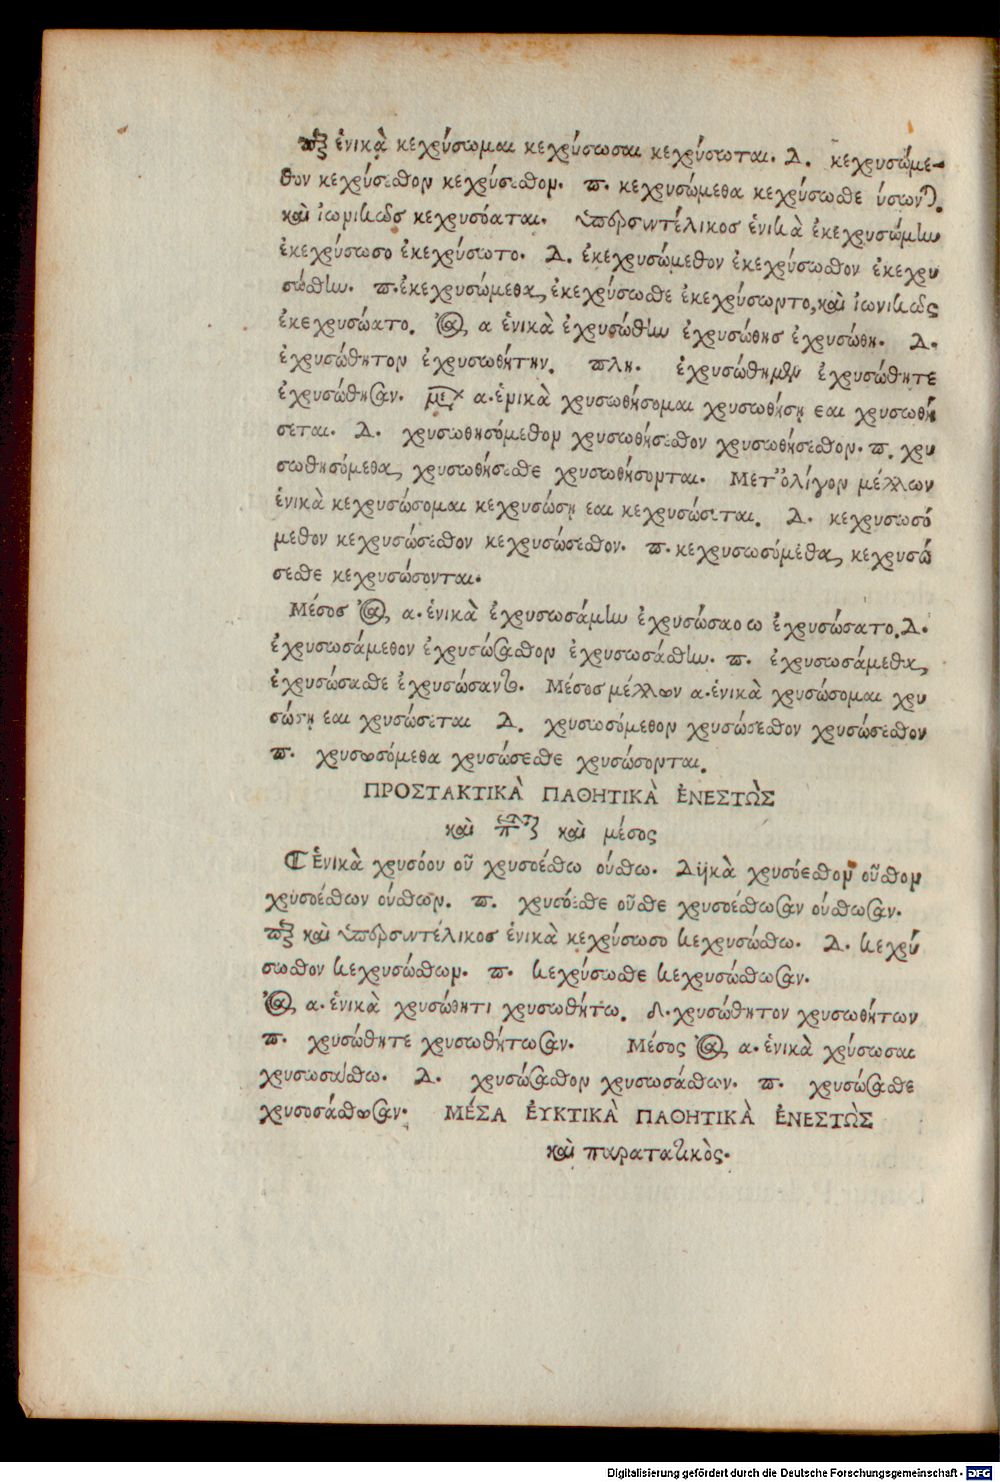 ἑνικὰ κεχρύσωμαι κεχρύσωσαι κεχρύσωται. Δ. κεχρυσώμε-
θον κεχρύσωσθον κεχρύσωσθον. π. κεχρυσώμεθα κεχρύσωσθε ύσωνται.
καὶ ἰωνικῶς κεχρυσόαται. ὑπερσυντέλικος ἑνικὰ ἐκεχρυσώμην
ἐκεχρύσωσο ἐκεχρύσωτο. Δ. ἐκεχρυσώμεθον ἐκεχρύσωσθον ἐκεχρυ
σώσθην. π. ἐκεχρυσώμεθα, ἐκεχρύσωσθε ἐκεχρύσωντο, καὶ ἰωνικῶς
ἐκεχρυσώατο. α ἑνικὰ ἐχρυσώθην ἐχρυσώθης ἐχρυσώθη. Δ.
ἐχρυσώθητον ἐχρυσωθήτην. πλη. ἐχρυσώθημεν ἐχρυσώθητε
ἐχρυσώθησαν. α. ἑνικὰ χρυσωθήσομαι χρυσωθήση εαι χρυσωθή
σεται. Δ. χρυσωθησόμεθον χρυσωθήσεσθον χρυσωθήσεσθον. π. χρυ
σωθησόμεθα, χρυσωθήσεσθε χρυσωθήσονται. Μετ' ὀλίγον μέλλων
ἑνικὰ κεχρυσώσομαι κεχρυσώση εαι κεχρυσώσεται. Δ. κεχρυσωσό
μεθον κεχρυσώσεσθον κεχρυσώσεσθον. π. κεχρυσωσόμεθα, κεχρυσώ
σεσθε κεχρυσώσονται.
Μέσος α. ἑνικὰ ἐχρυσωσάμην ἐχρυσώσαο ω ἐχρυσώσατο. Δ.
ἐχρυσωσάμεθον ἐχρυσώσασθον ἐχρυσωσάσθην. π. ἐχρυσωσάμεθα,
ἐχρυσώσασθε ἐχρυσώσαντο. Μέσος μέλλων α. ἑνικὰ χρυσώσομαι χρυ
σώση εαι χρυσώσεται Δ. χρυσωσόμεθον χρυσώσεσθον χρυσώσεσθον
π. χρυσωσόμεθα χρυσώσεσθε χρυσώσονται.
ΠΡΟΣΤΑΚΤΙΚᾺ ΠΑΘΗΤΙΚᾺ ἘΝΕΣΤῺΣ
καὶ καὶ μέσος
Ἑνικὰ χρυσόου οῦ χρυσοέσθω ούσθω. Δϋκὰ χρυσόεσθον οῦσθον
χρυσοέσθων ούσθων. π. χρυσόεσθε οῦσθε χρυσοέσθωσαν ούσθωσαν.
καὶ ὑπερσυντέλικος ἑνικὰ κεχρύσωσο κεχρυσώσθω. Δ. κεχρύ
σωσθον κεχρυσώσθων. π. κεχρύσωσθε κεχρυσώσθωσαν.
α. ἑνικὰ χρυσώθητι χρυσωθήτω. Δ. χρυσώθητον χρυσωθήτων
π. χρυσώθητε χρυσωθήτωσαν. Μέσος α. ἑνικὰ χρύσωσαι
χρυσωσάσθω. Δ. χρυσώσασθον χρυσωσάσθων. π. χρυσώσασθε
χρυσοσάσθωσαν. ΜΈΣΑ ἘΥΚΤΙΚᾺ ΠΑΘΗΤΙΚᾺ ἘΝΕΣΤῺΣ
καὶ παρατατικὸς.
Digitalisierung gefördert durch die Deutsche Forschungsgemeinschaft - DFG